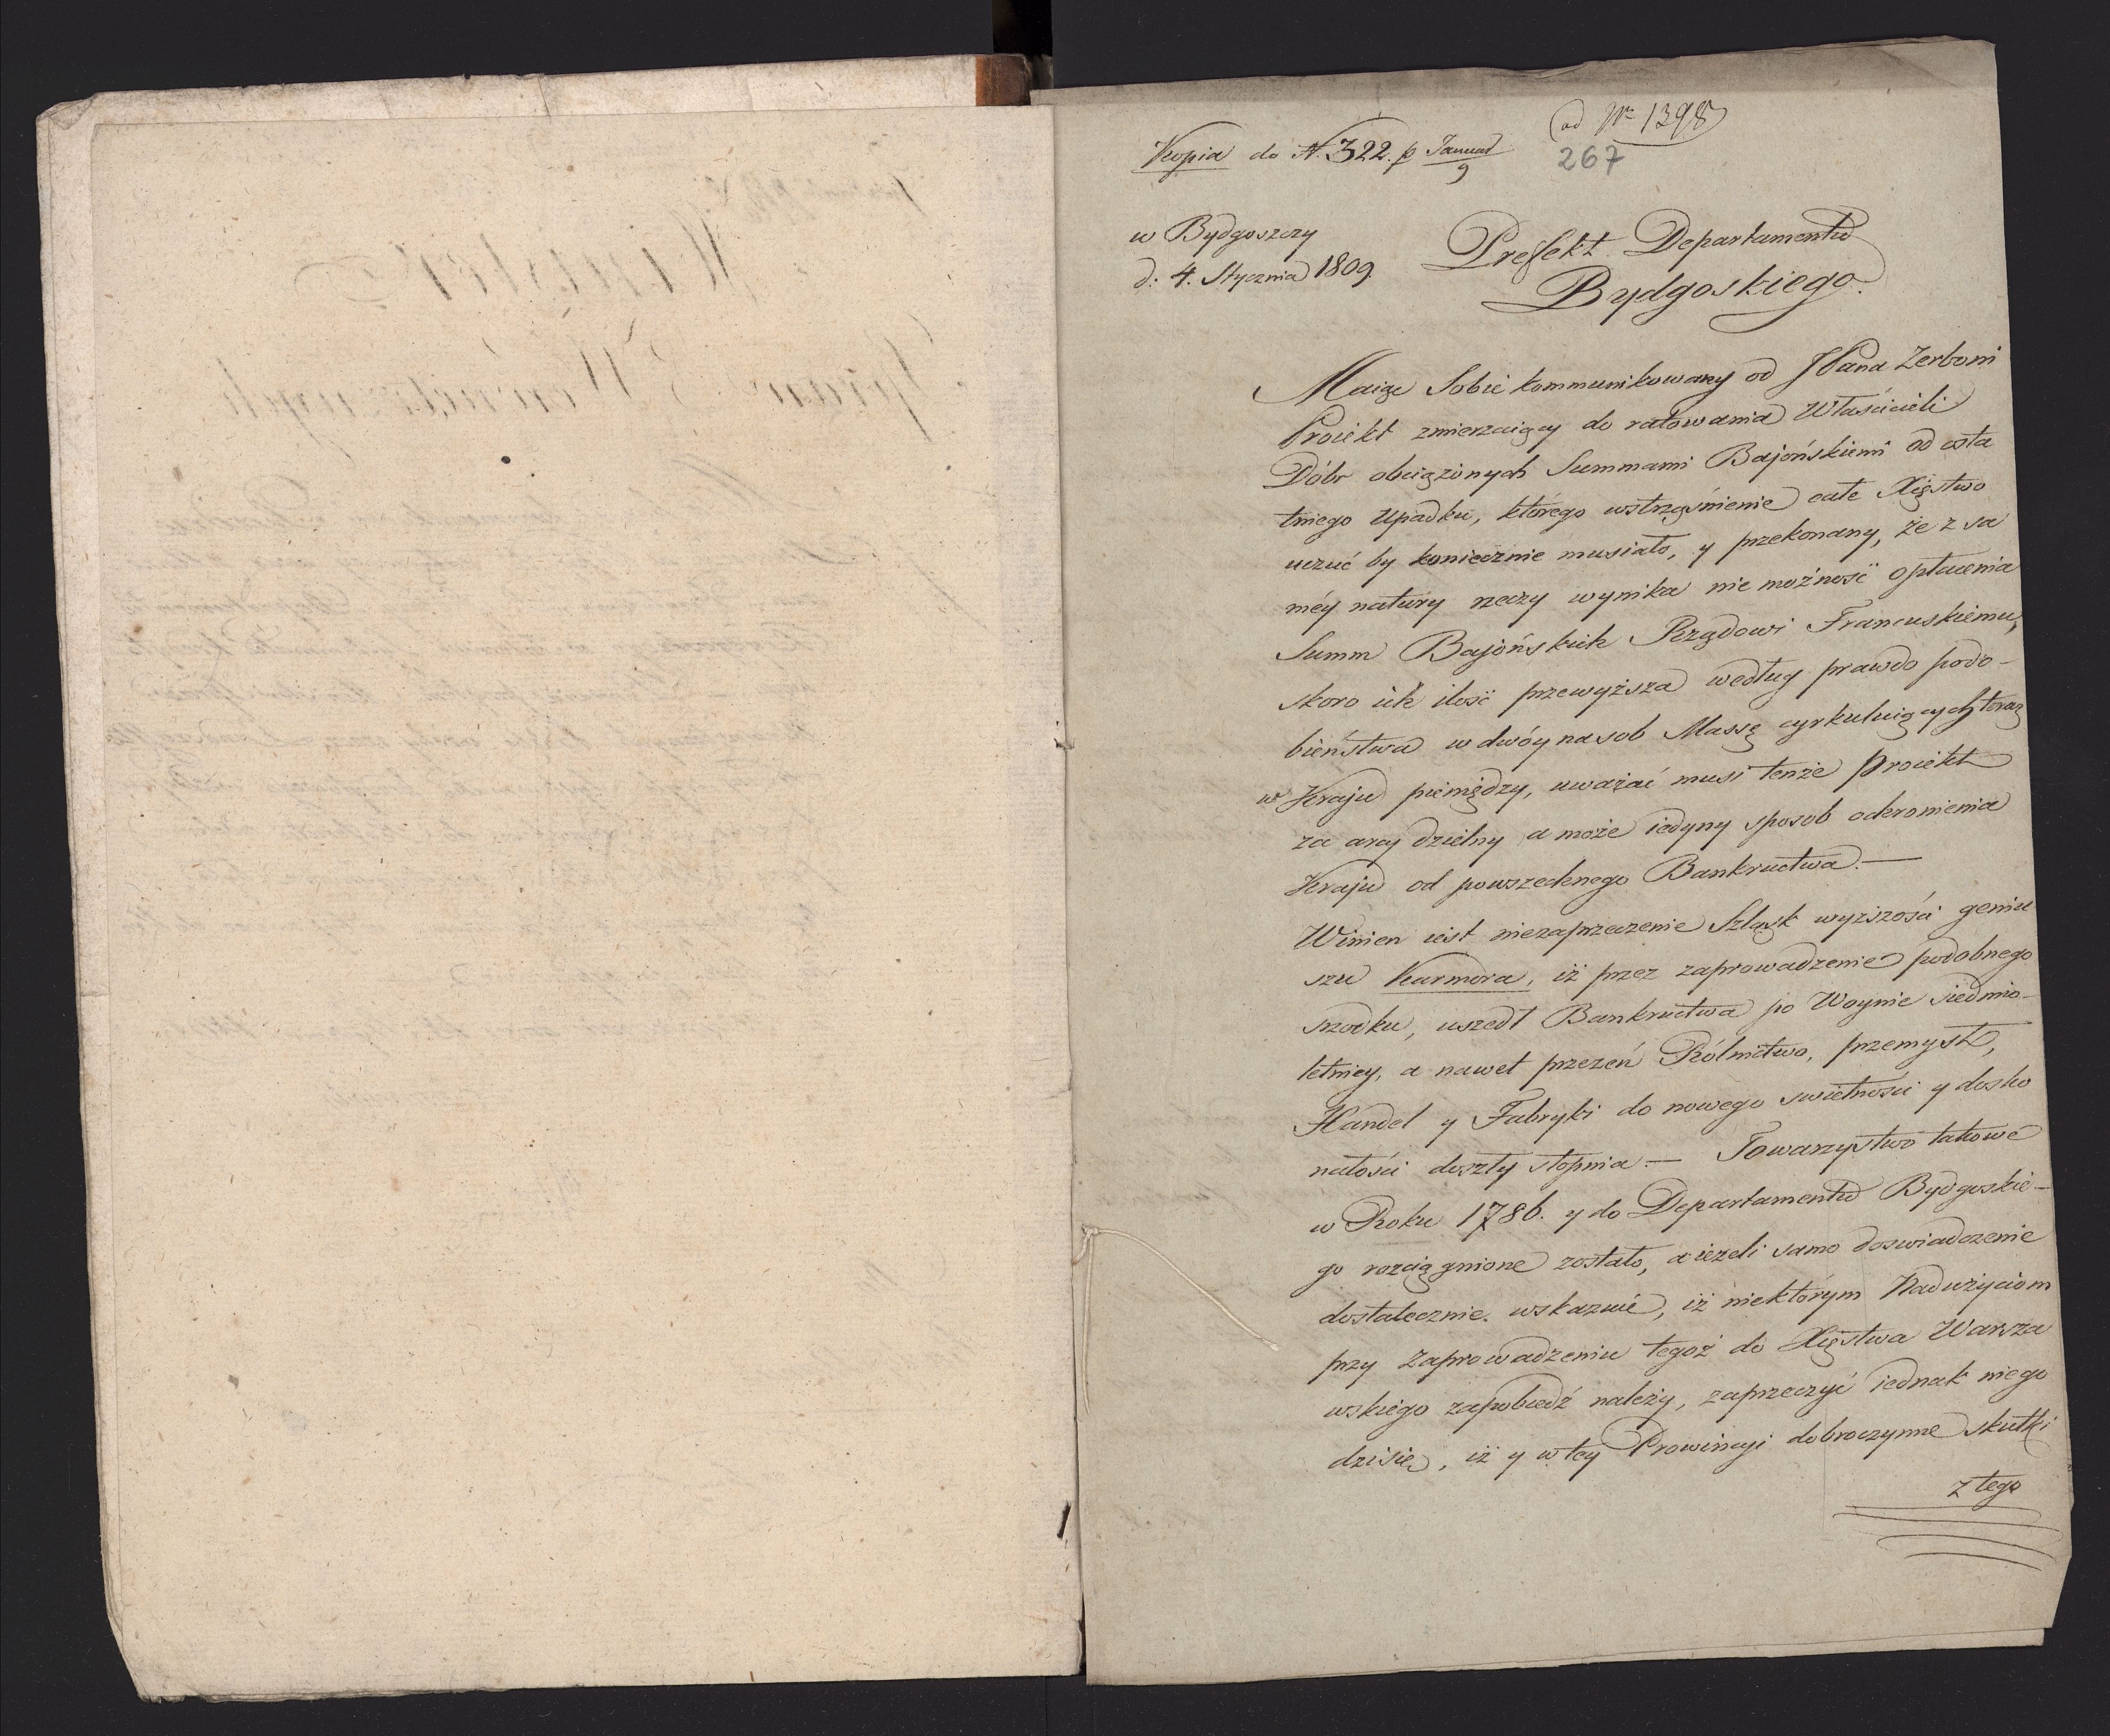 ad Nr 1398
Kopia do N. 322. p Januar 9
267
w Bydgoszczy
d: 4. Stycznia 1809.
Prefekt Departamentu
Bydgoskiego.
Maiąc Sobie kommunikowany od JPana Zerboni
Proiekt zmierzaiący do ratowania Właścicieli
Dóbr obciążonych Summami Bajońskiemi od osta
tniego Upadku, którego wstrząśnienie całe Xięstwo
uczuć by koniecznie musiało, y przekonany, że z sa
méy natury rzeczy wynika nie możność opłacenia
Summ Bajońskich Rządowi Francuskiemu,
skoro ich ilość przewyższa według prawdo podo-
bieństwa w dwóy nasob Massę cyrkuluiących teraz
w Kraju pieniędzy, uważać musi tenże Proiekt
za arcy dzielny a może iedyny sposob ochronienia
Kraju od powszechnego Bankructwa.—
Winien iest niezaprzeczenie Szląsk wyższości geniu
szu Karmera, iż przez zaprowadzenie podobnego
srzodku, uszedł Bankructwa po Woynie siedmio-
letniey, a nawet przezeń Rólnictwo, przemysł,
Handel y Fabryki do nowego swietności y dosko
nałości doszły stopnia.— Towarzystwo takowe
w Roku 1786. y do Departamentu Bydgoskie-
go rozciągnione zostało, a ieżeli samo doswiadczenie
dostatecznie wskazuie, iż niektórym Nadużyciom
przy Zaprowadzeniu tegoż do Xięstwa Warsza
wskiego zapobiedź należy, zaprzeczyć iednak niego
dzi się, iż y w tey Prowincyi dobroczynne skutki
z tego